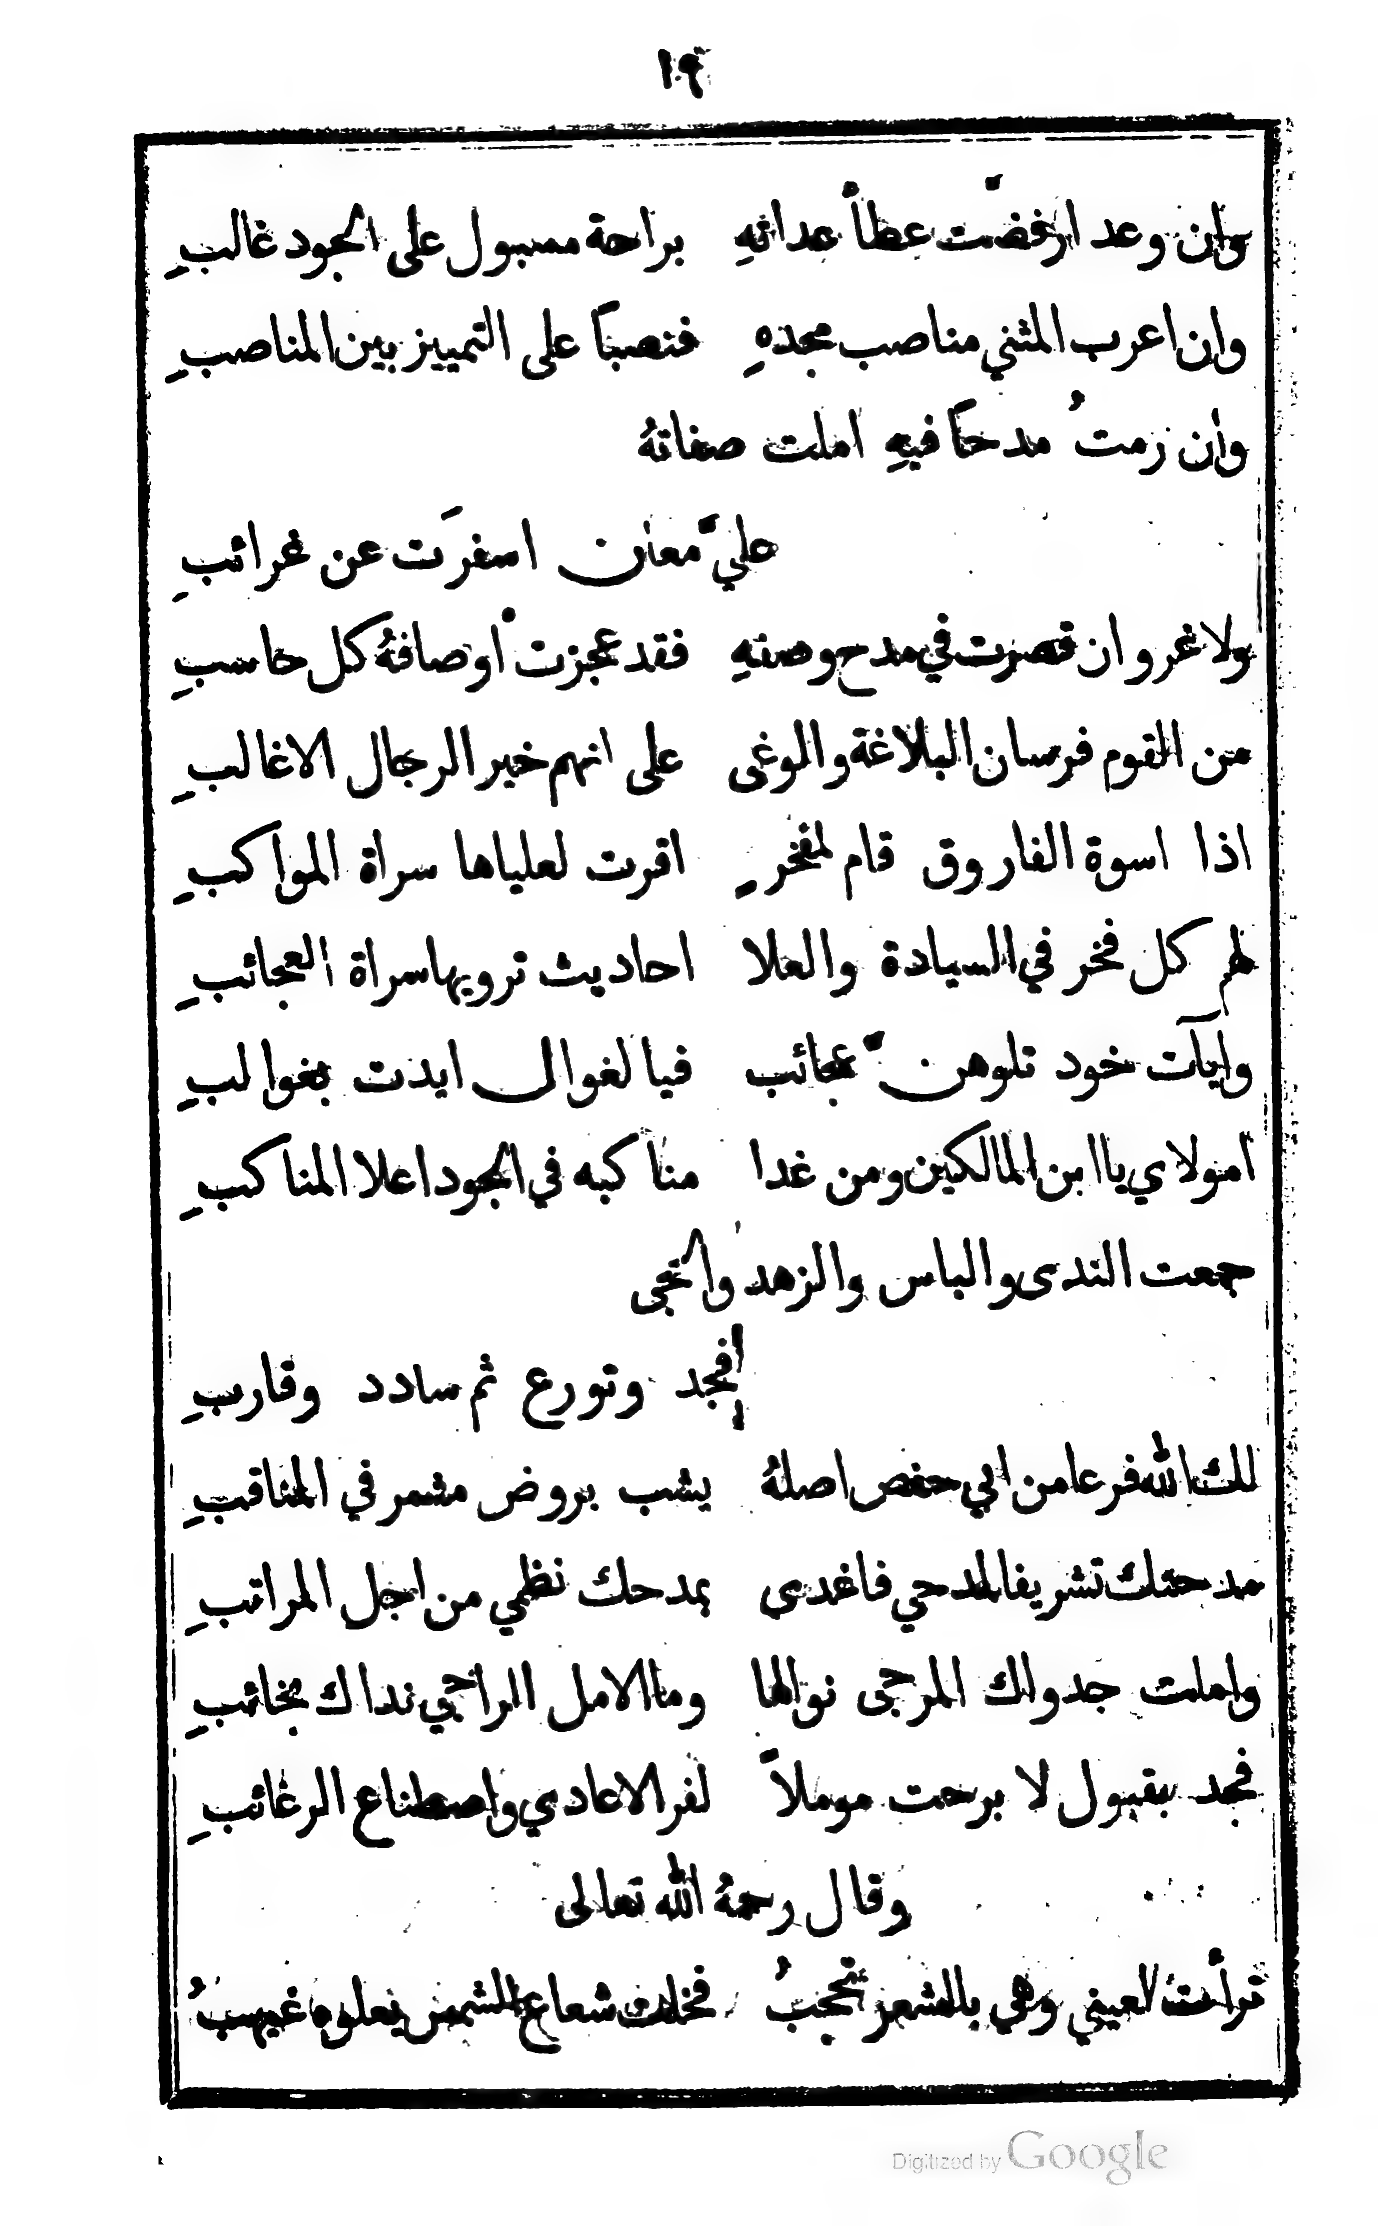 ١٩
وان وعد ارفضّت عطاً عداتهِ براحة مسبول على الجود غالبِ
وان اعرب المثني مناصب مجدهِ فنصباً على التمييز بين المناصبِ
وان رمتُ مدحاً فيهِ املت صفاتهُ
عليّ معان اسفرَت عن غرائبِ
ولا غرو ان قصرت في مدح وصفهِ فقد عجزت اوصافهُ كل حاسبِ
من القوم فرسان البلاغة والوغى على انهم خير الرجال الاغالبِ
اذا اسوة الفاروق قام لمفخرٍ اقرت لعلياها سراة المواكبِ
لهم كل فخر في السيادة والعلا احاديث ترويها سراة العجائبِ
وايآت خود تلوهنّ عجائب فيا لغوال ايدت بغوالبِ
امولاي يا ابن المالكين ومن غدا مناكبه في الجود اعلا المناكبِ
جمعت الندى والباس والزهد والحجى
فجد وتورع ثم سادد وقاربِ
لك الله فرعا من ابي حفص اصلهُ يشب بروض مثمر في المناقبِ
مدحتك تشريفا لمدحي فاغدى بمدحك نظمي من اجل المراتبِ
واملت جدواك المرجى نوالها وما الامل الراجي نداك بخائبِ
فجد بقبول لا برحت موملاً لفر الاعادي واصطناع الرغائبِ
وقال رحمهُ الله تعالى
ترأت لعيني وهي بالشعر تحجبُ فخلت شعاع الشمس يعلوه غيهبُ
Digitized by Google